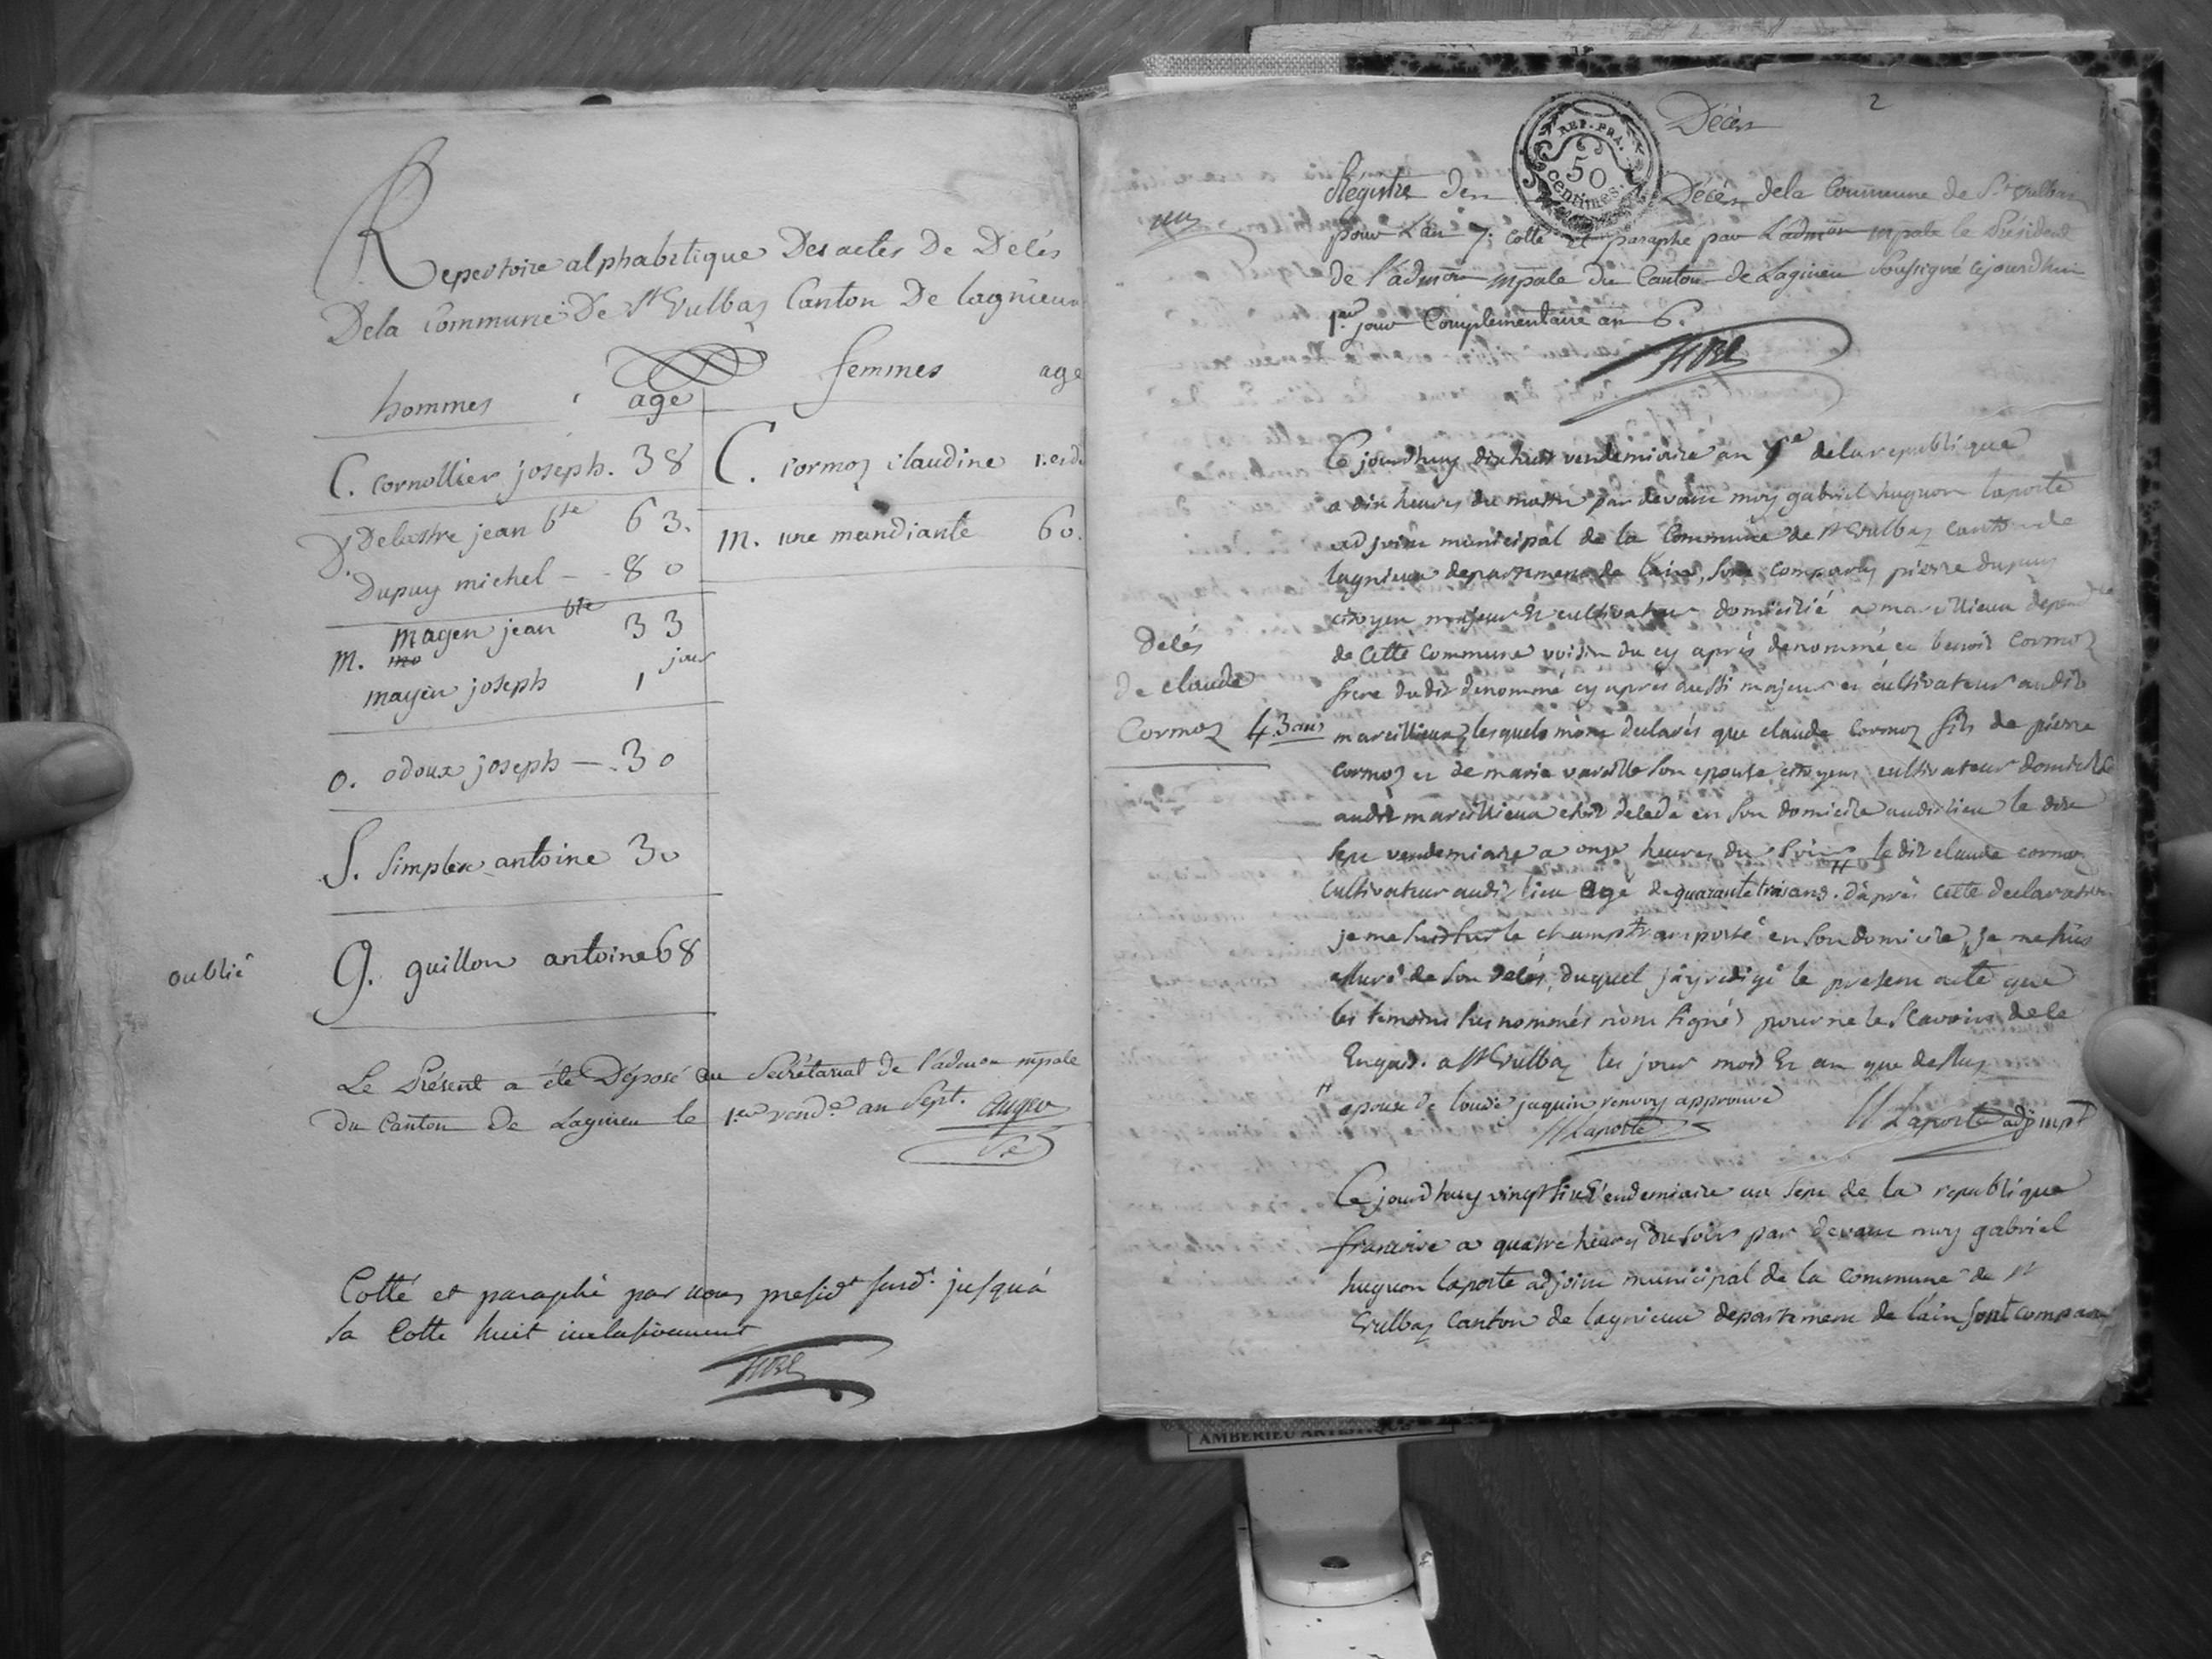 Repertoire alphabetique Des actes de Delés
De la Commune De St Vulbaz Canton De lagnieux
hommes age
femmes age
C. cornollier joseph. 38
D. Delastre jean bte 63.
Dupuy michel — 80
M. magen jean bte 33
mayen joseph 1 jour
O. odoux joseph — 30
S. Simplex antoine 30
oublié
G. guillon antoine 68
C. cormoz claudine
M. une mandiante 60.
Le Présent a été Déposé au Secrétariat de l'admon mpale
du Canton de Lagnieu le 1.er vend.e an Sept. auger
Cotté et paraphé par nous presidt jusqu'a
la Cotte huit inclusivement
2
Décès
REP. FRA.
50
centimes.
Régistre des Décès de la Commune de St Vulbas
pour L'an 7; cotté et paraphé par L'admon mpale le Président
de l'admon mpale du Canton de Lagnieu Soussigné cejourdhui
1.er jour Complementaire an 6.
Ce jourdhuy dix huit vendemiaire an 7e de la republique
a dix heures du matin par devant moy gabriel hugnon laporte
adjoint municipal de la Commune de st Vulbaz canton de
lagnieux departement de lain, sont comparus pierre dupuy
citoyen majeur et cultivateur domicilié a marcillieux
de cette commune voisin du cy aprés denommé et benoit cormoz
frere dudit denommé cy aprés aussi majeur et cultivateur audit
marcillieux lesquels mont declarés que claude cormoz fils de pierre
cormoz et de marie son epouse citoyens cultivateur domicilié
audit marcillieux etoit delede en son domicile audit lieu le dix
sept vendemiaire a onze heures du soir // le dit claude cormoz
cultivateur audit lieu agé de quarante trois ans. d'aprés cette declaration
je me suis sur le champ transporté en son domicile, je me suis
assuré de son delés, duquel j'ay redigé le present acte que
les temoins sus nommés nont signés pour ne le scavoir de ce
Enquis. a st Vulbaz les jour mois Et an que dessus
// epoux de jaquin renvoy approuvé
Laporte
Laporte adj mpl
Delés
de claude
Cormoz 43 ans
Ce jourdhuy vingt six Vendemiaire an sept de la republique
francoise a quatre heures du soir par devant moy gabriel
hugnon laporte adjoint municipal de la commune de st
Vulbaz canton de lagnieux departement de lain sont comparus
AMBERIEU ARTISTIQUE